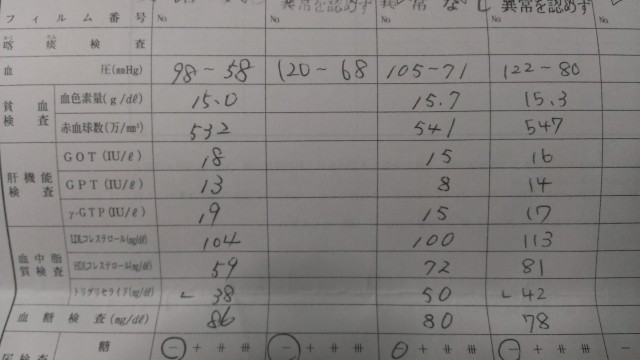 異常を認めず 異常なし 異常を認めず
フィルム番号 No. No. No. No.
喀痰検査
血圧(mmHg) 98-58 120-68 105-71 122-80
貧血検査 血色素量(g/dℓ) 15.0 15.7 15.3
赤血球数(万/mm³) 532 541 547
肝機能検査 GOT(IU/ℓ) 18 15 16
GPT(IU/ℓ) 13 8 14
γ-GTP(IU/ℓ) 19 15 17
血中脂質検査 LDLコレステロール(mg/dℓ) 104 100 113
HDLコレステロール(mg/dℓ) 59 72 81
トリグリセライド(mg/dℓ) L 38 50 L 42
血糖検査(mg/dℓ) 86 80 78
尿検査 糖 - + ⧺ ⧻ - + ⧺ ⧻ + ⧺ ⧻ - + ⧺ ⧻ -